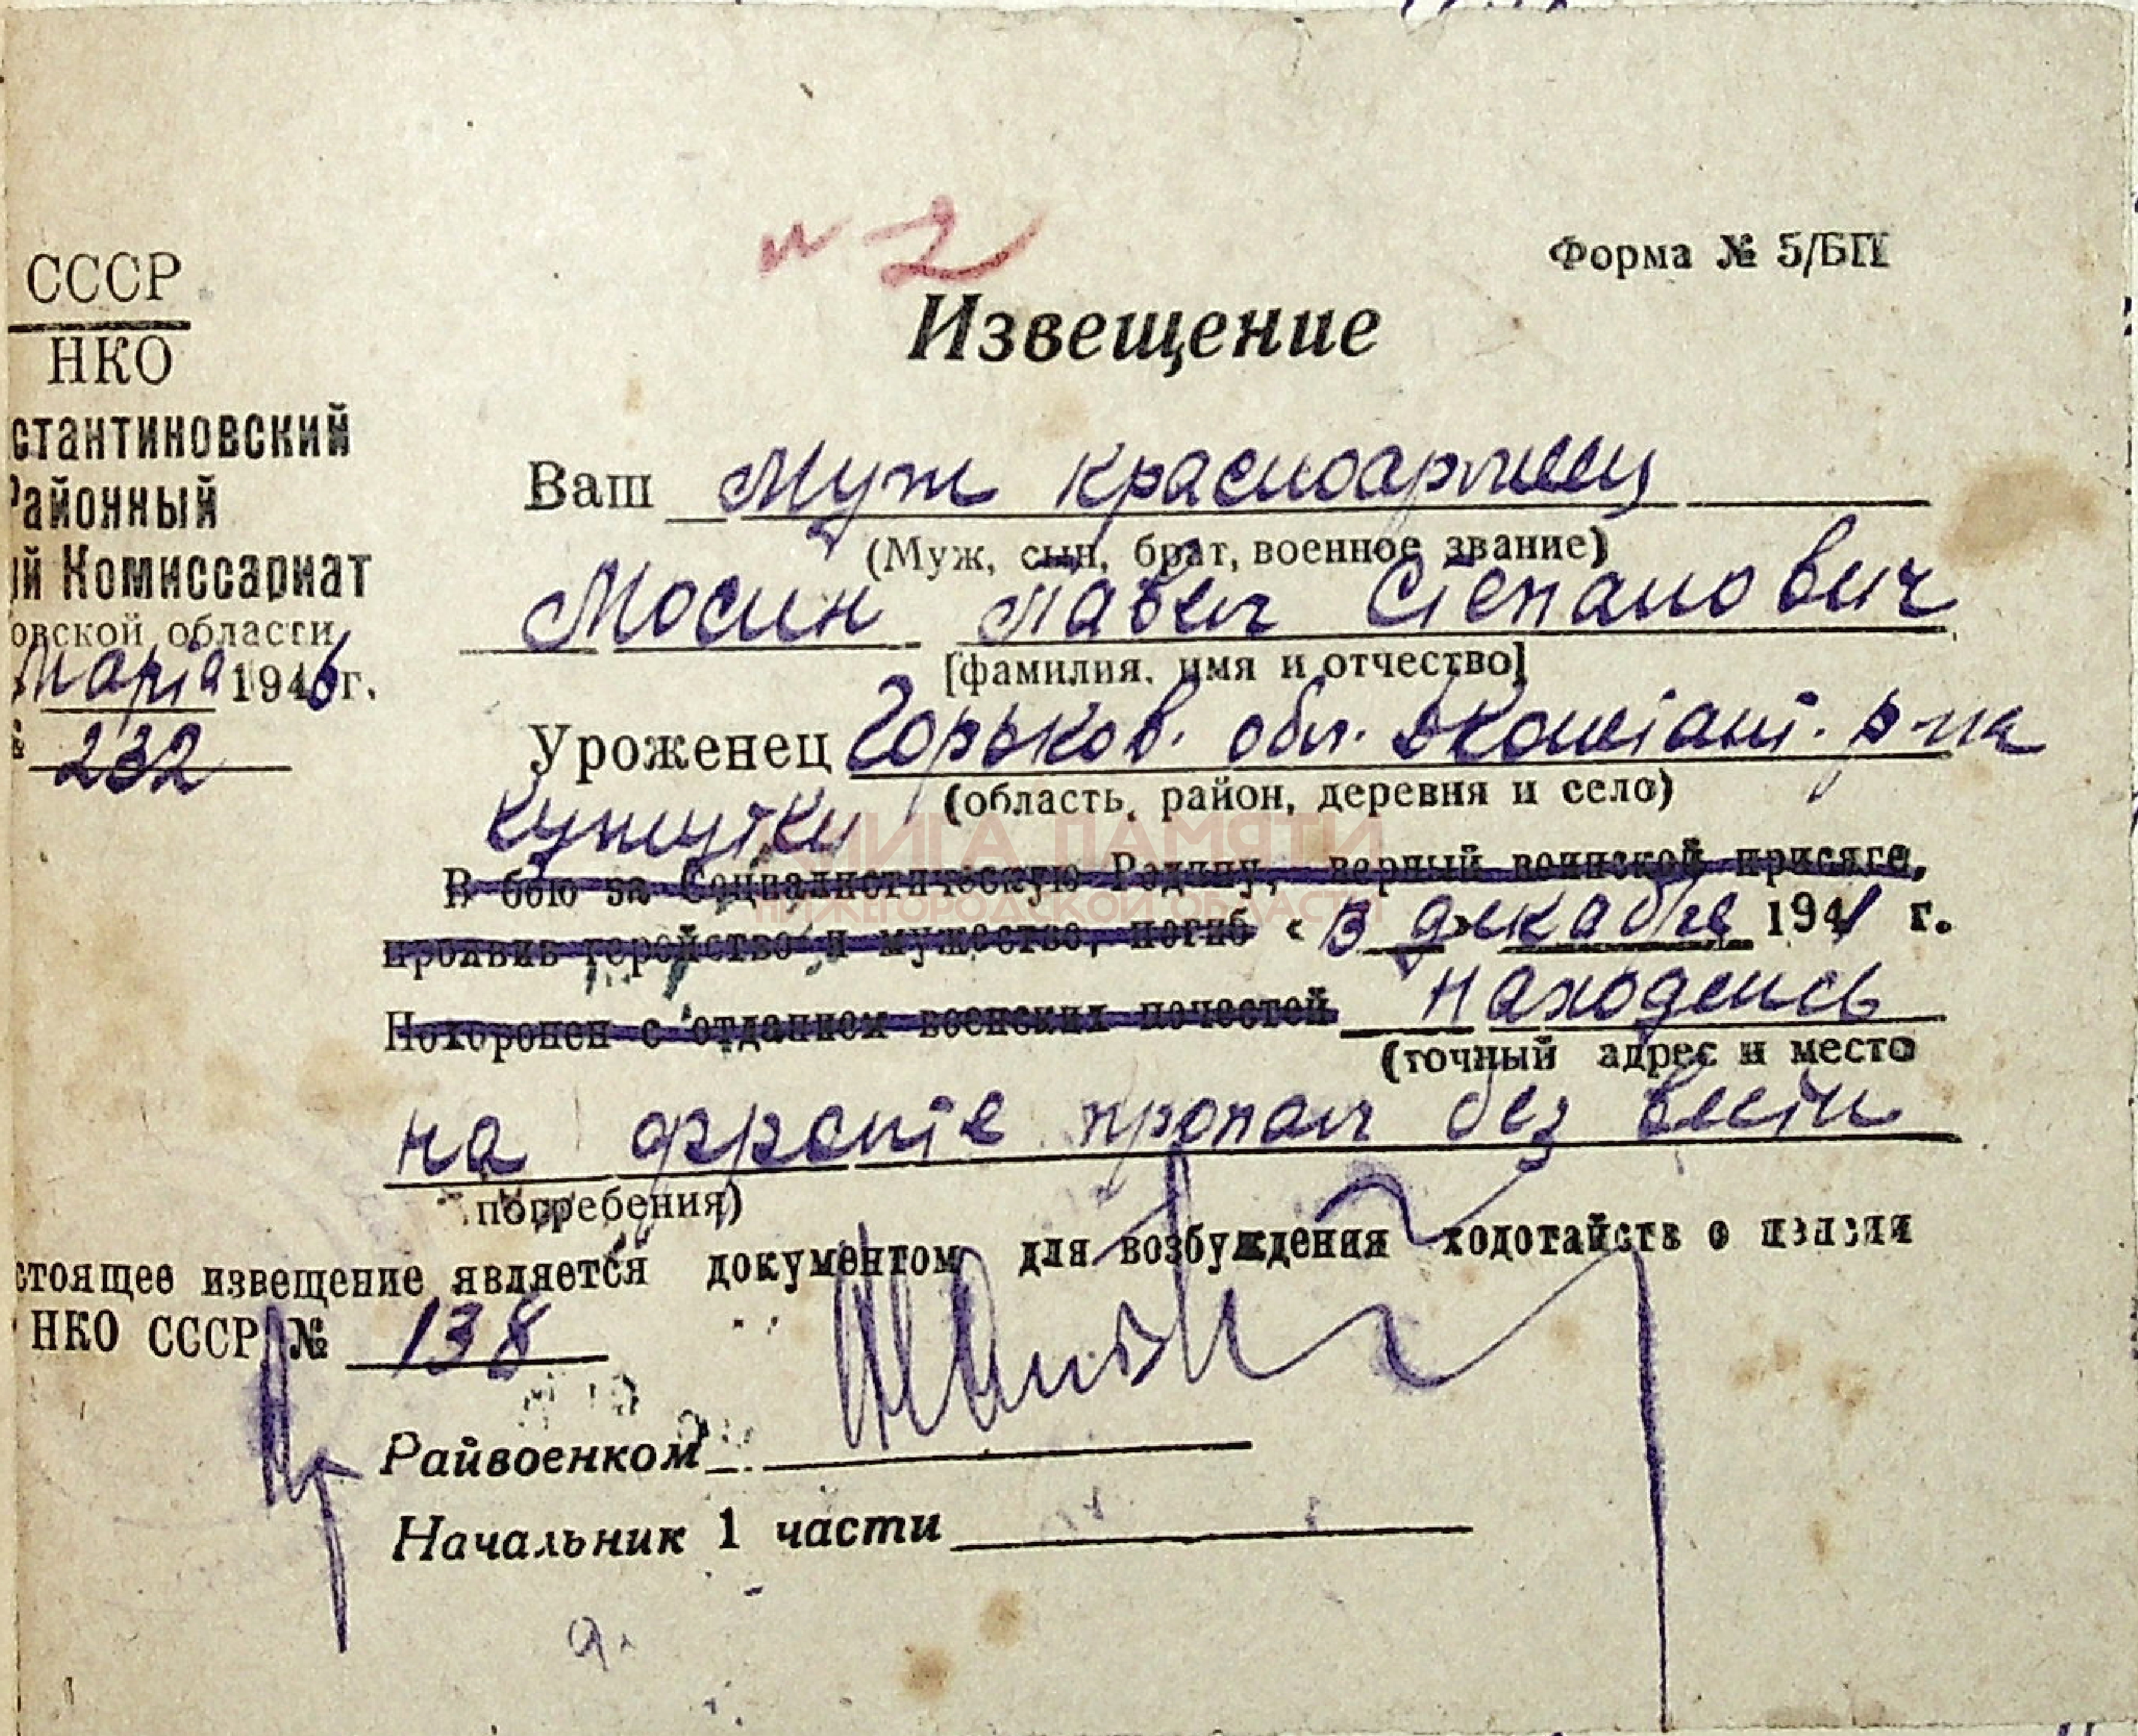 № 2
Форма № 5/БП
СССР
НКО
стантиновский
Районный
ый Комиссариат
овской области
Марта 1946 г.
№ 232
Извещение
Ваш Муж красноармеец
(Муж, сын, брат, военное звание)
Мосин Павел Степанович
[фамилия, имя и отчество]
Уроженец Горьков. обл. Дконстант. р-на
(область, район, деревня и село)
КНИГА ПАМЯТИ
НИЖЕГОРОДСКОЙ ОБЛАСТИ
В бою за Социалистическую Родину, верный воинской присяге,
проявив геройство и мужество, погиб « В декабре 1941 г.
Похоронен с отданием воинских почестей находясь
(точный адрес и место
на фронте пропал без вести
погребения)
стоящее извещение является документом для возбуждения ходотайств о пенсии
НКО СССР № 138
Райвоенком
Начальник 1 части